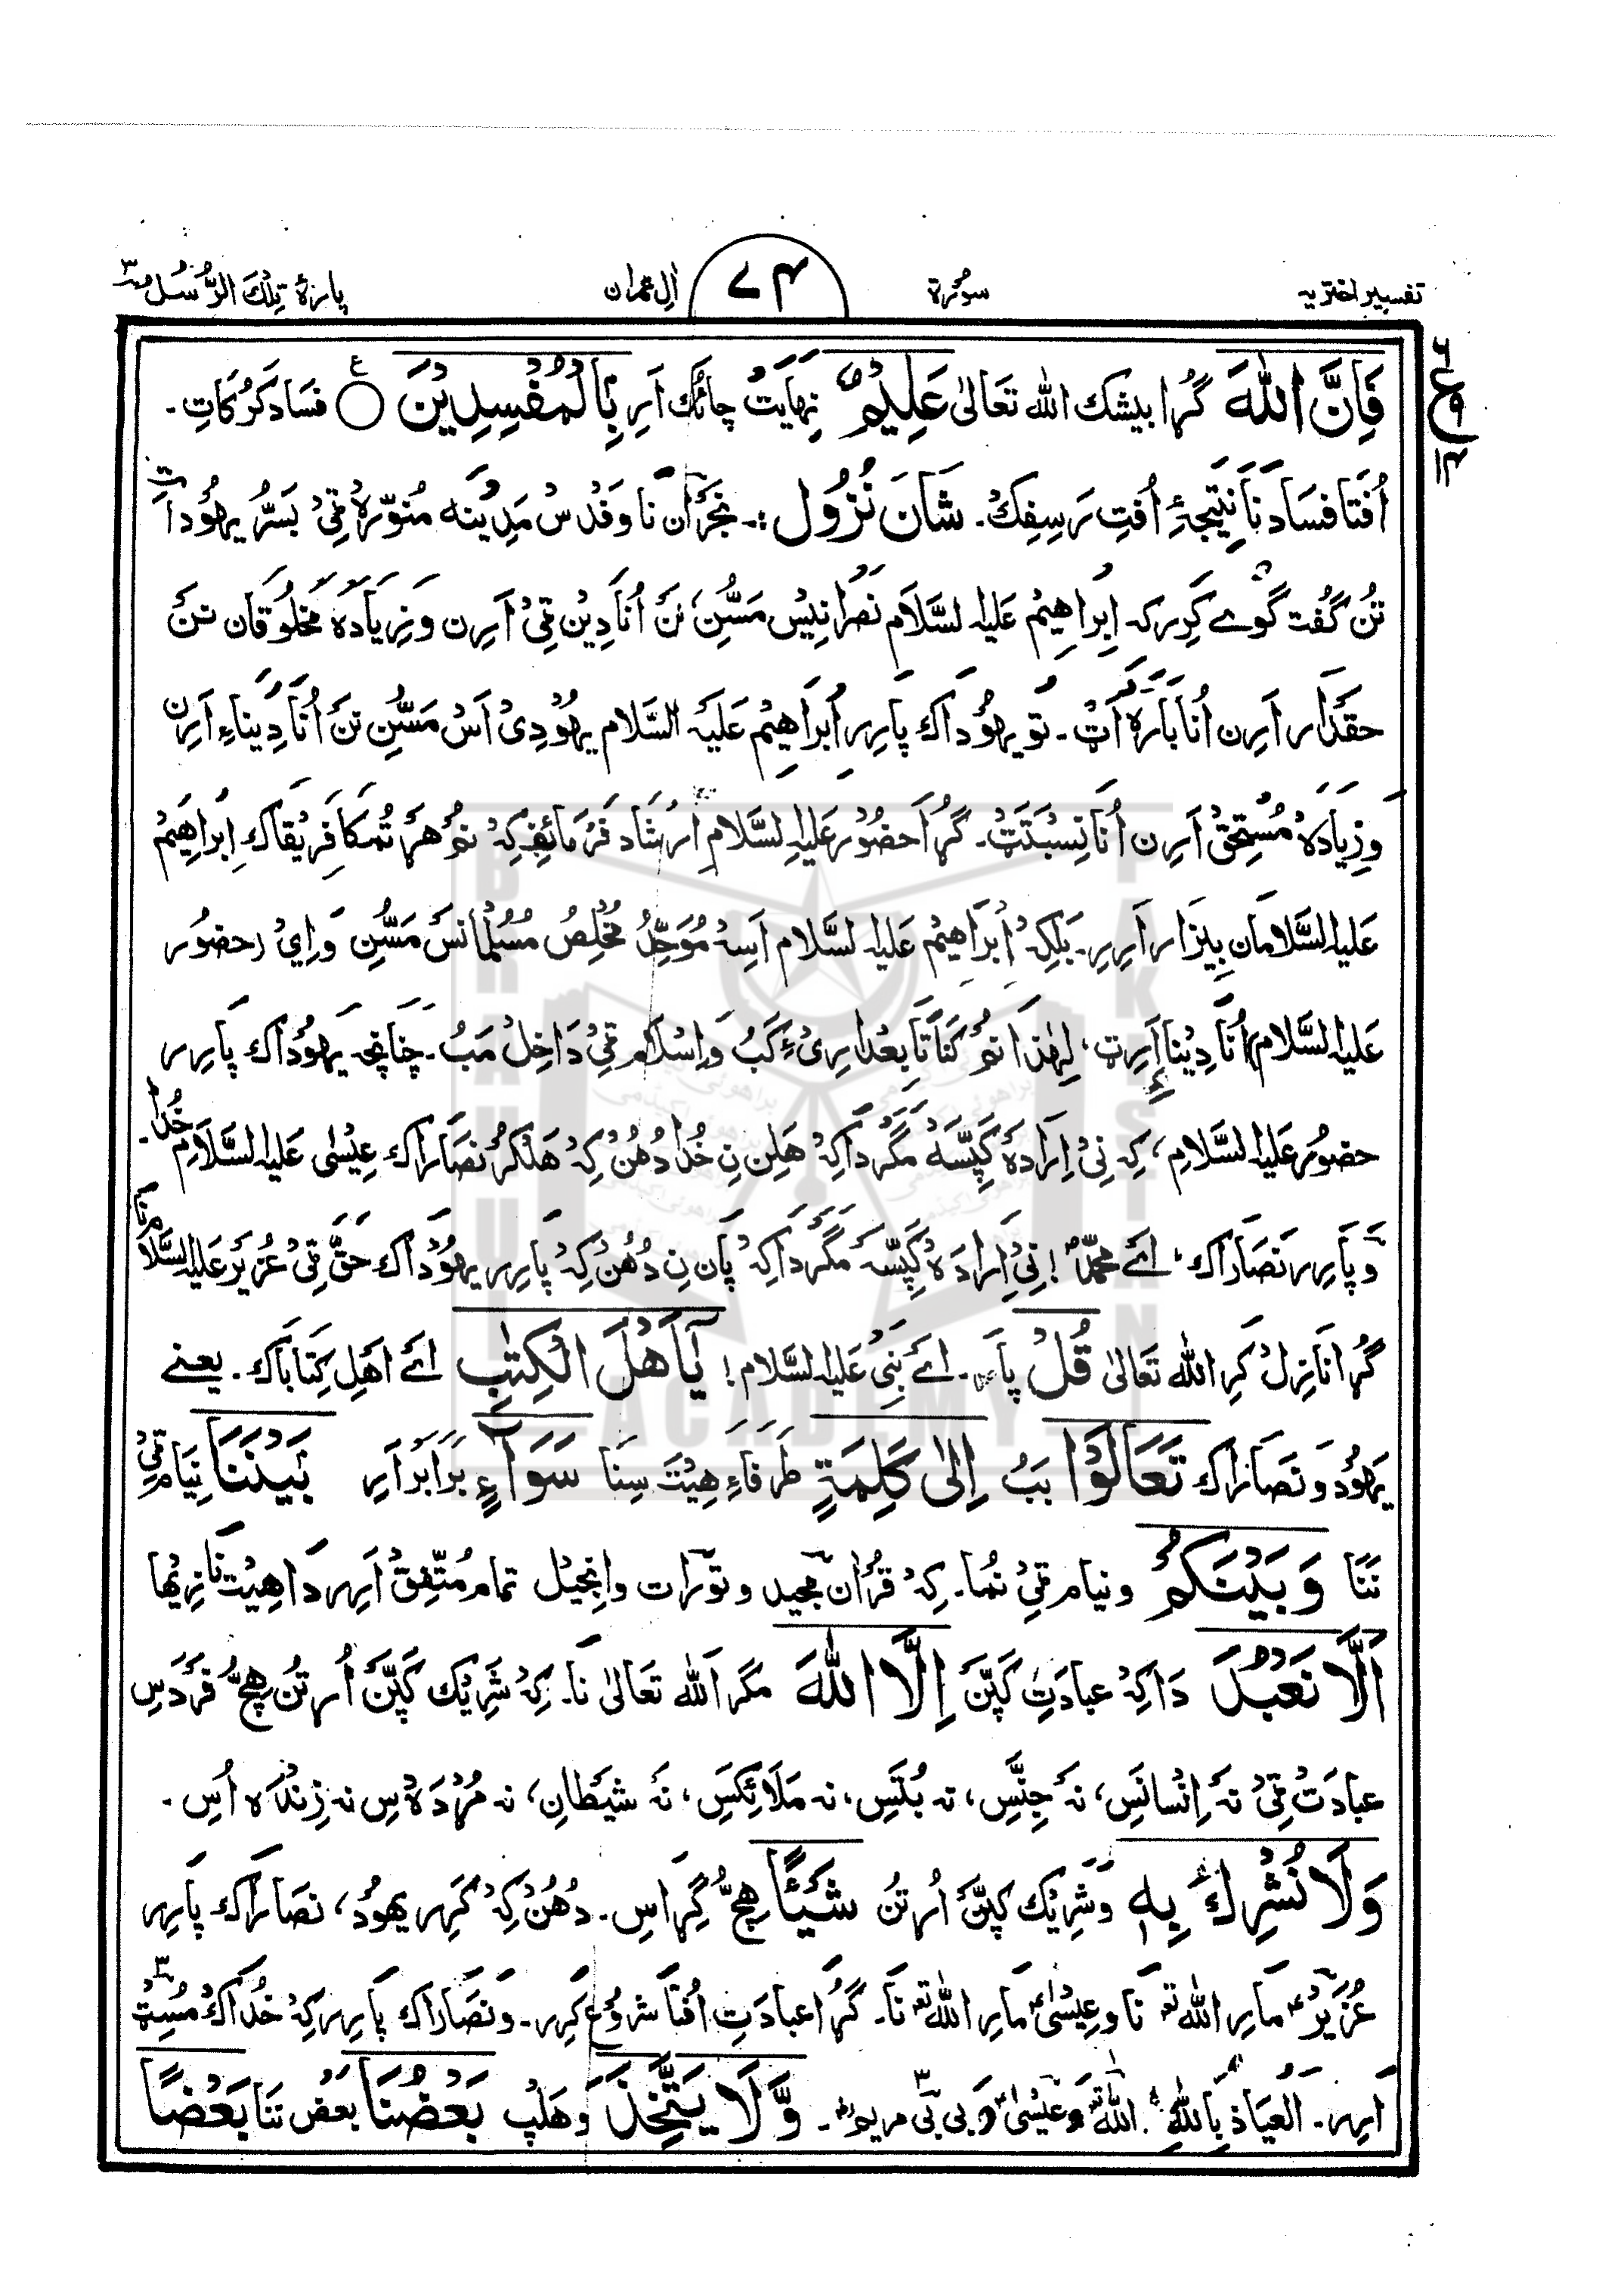 تفسیر اختریہ سورۃ ۷۴ اٰل عمران پارۂ تِلْکَ الرُّسُل ۳
فَاِنَّ اللّٰہَ گُڑا بیشک اللہ تعالیٰ عَلِیْمٌ نِہایَتْ چائک اَرِ بِالْمُفْسِدِیْنَ ○ فَسَاد کَرُکاتِ۔
اُفتا فسَادنَا نتیجۂِ اُفتِ رَسِفِکْ۔ شَانَ نُزُول:۔ نجرَان نَا وَفدْس مَدِینہ مُنوّرہ ٹِیْ بَسُّر یہُوداتِ
تَنْ گَفت گوے کِرِر کہ اِبراھِیْمْ عَلیہِ السَّلَام نَصْرَانِیس مَسُّنِ، نَن اُنَا دِین ٹِیْ اَرِن وَ زِیَادَہ مَخلُوقَان تَنَ
حقدَار اَرِن اُنَا بَارَہ اَٹ۔ تو یہُودَاک پَارِر اِبْرَاھِیْم عَلَیہِ السَّلَام یہُودِیْ اَسْ مَسُّنِ نَنَ اُنَا دِینَاءِ اَرِن
وَزِیَادَہْ مُسْتِحَقْ اَرِن اُنَا نِسبَتَٹْ۔ گُڑا حضُوْر عَلیہِ السَّلَام اِرشَاد فَرْمَائِفِ کِہْ نُم ھَر تُمکَا فِرِیْقَاک اِبْرَاھِیْمْ
عَلیہِ السَّلَامَان بِیزَار اَرِیرِ۔ بَلکِہْ اِبْرَاھِیْمْ عَلیہِ السَّلَام اَسِہْ مُوَحِّدْ مُخْلِصْ مُسُلمَانَس مَسُّنِ وَ اِیْ (حضُور
عَلیہِ السَّلَام) اُنَا دِیْنَا اَرِٹ، لِہٰذَا نُم کَنَا تَابعدَارِیْ ءِ کَبْ وَ اِسْلَام ٹِیْ دَاخِلْ مَبُ۔ چنانچہ یَہُودَاک پَارِرر
حضُوْر عَلیہِ السَّلَامِ، کِہ نِیْ اِرَادَہ کَپِّسَہ مَگَر دَاکِہْ ھَلِن نِ خُدَا دُھُنْ کِہْ ھَلْکُرْ نصَارَاک عِیْسٰی عَلیہِ السَّلَامِ خُدَا۔
وَ پَارِرر نَصَارَاک، اَے مُحمَّدؐ! نِیْ اِرَادَہْ کَپِّسَہ مَگَر دَاکِہْ پَان نِ دُھُنْ کِہْ پَارِرر یہُوْدَاک حَقَّ ٹِیْ عُزَیْر عَلیہِ السَّلَام نَا
گُڑا نَازِلْ کَرِ اللہ تَعَالٰی قُلْ پَا۔ اَے نَبِیْ عَلیہِ السَّلَام! یٰٓاَھْلَ الْکِتٰبِ اَے اھْلِ کِتَابَاک۔ یعنے
یَہُود و نصَارَاک تَعَالَوْا بَبُ اِلٰی کَلِمَةٍ طَرَفَاءِ ھِیْتَ سِنَا سَوَآءٍ بَرَابَر اَرِ بَیْنَنَا نِیَام ٹِیْ
نَنَا وَبَیْنَکُمْ وَ نیام ٹِیْ نُما۔ کِہْ قُرْان مجید و توْرَات و اِنْجِیْل تمام مُتّفِقْ اَرِرر دَا ھِیْت نَا زِیْھا
اَلَّا نَعْبُدَ دَاکِہْ عبادَتِ کَپَّنَ اِلَّا اللّٰہَ مَگَر اَللہ تَعَالٰی نَا۔ کِہْ شَرِیْک کَپَّنَ اُر تَنْ ھِچُّ فَرْدَسِ
عبادَتْ ٹِیْ نَہ اِنْسَانَسِ، نَہ جِنَّسِ، نہ بُتَسِ، نہ مَلَائِکَسِ، نَہ شیطَانِ، نہ مُرْدَہ سِ نہ زِنْدَہ اُسِ۔
وَلَا نُشْرِكَ بِهٖ وَشَرِیْک کَپَّنَ اُر تَنْ شَیْئًا ھِچُّ گِرَاسِ۔ دُھُنْ کِہْ کَرِر یہودْ، نصَارَاک پَارِر
عُزَیْرؑ مَار اللہ نَا و عِیْسٰیؑ مَار اللہ نَا۔ گُڑا عبادَتِ اُفتَا شرُوع کَرِر۔ و نصَارَاک پَارِرر کِہْ خُدَاک مُسِٹْ
اَرِرر۔ اَلعِیَاذ بِاللہِ۔ اَللہ وَ عِیْسٰی وَ بی بی مریم۔ وَّلَا یَتَّخِذَ وَھَلپ بَعْضُنَا بعض نَنَا بَعْضًا
BRAHUI ACADEMY PAKISTAN